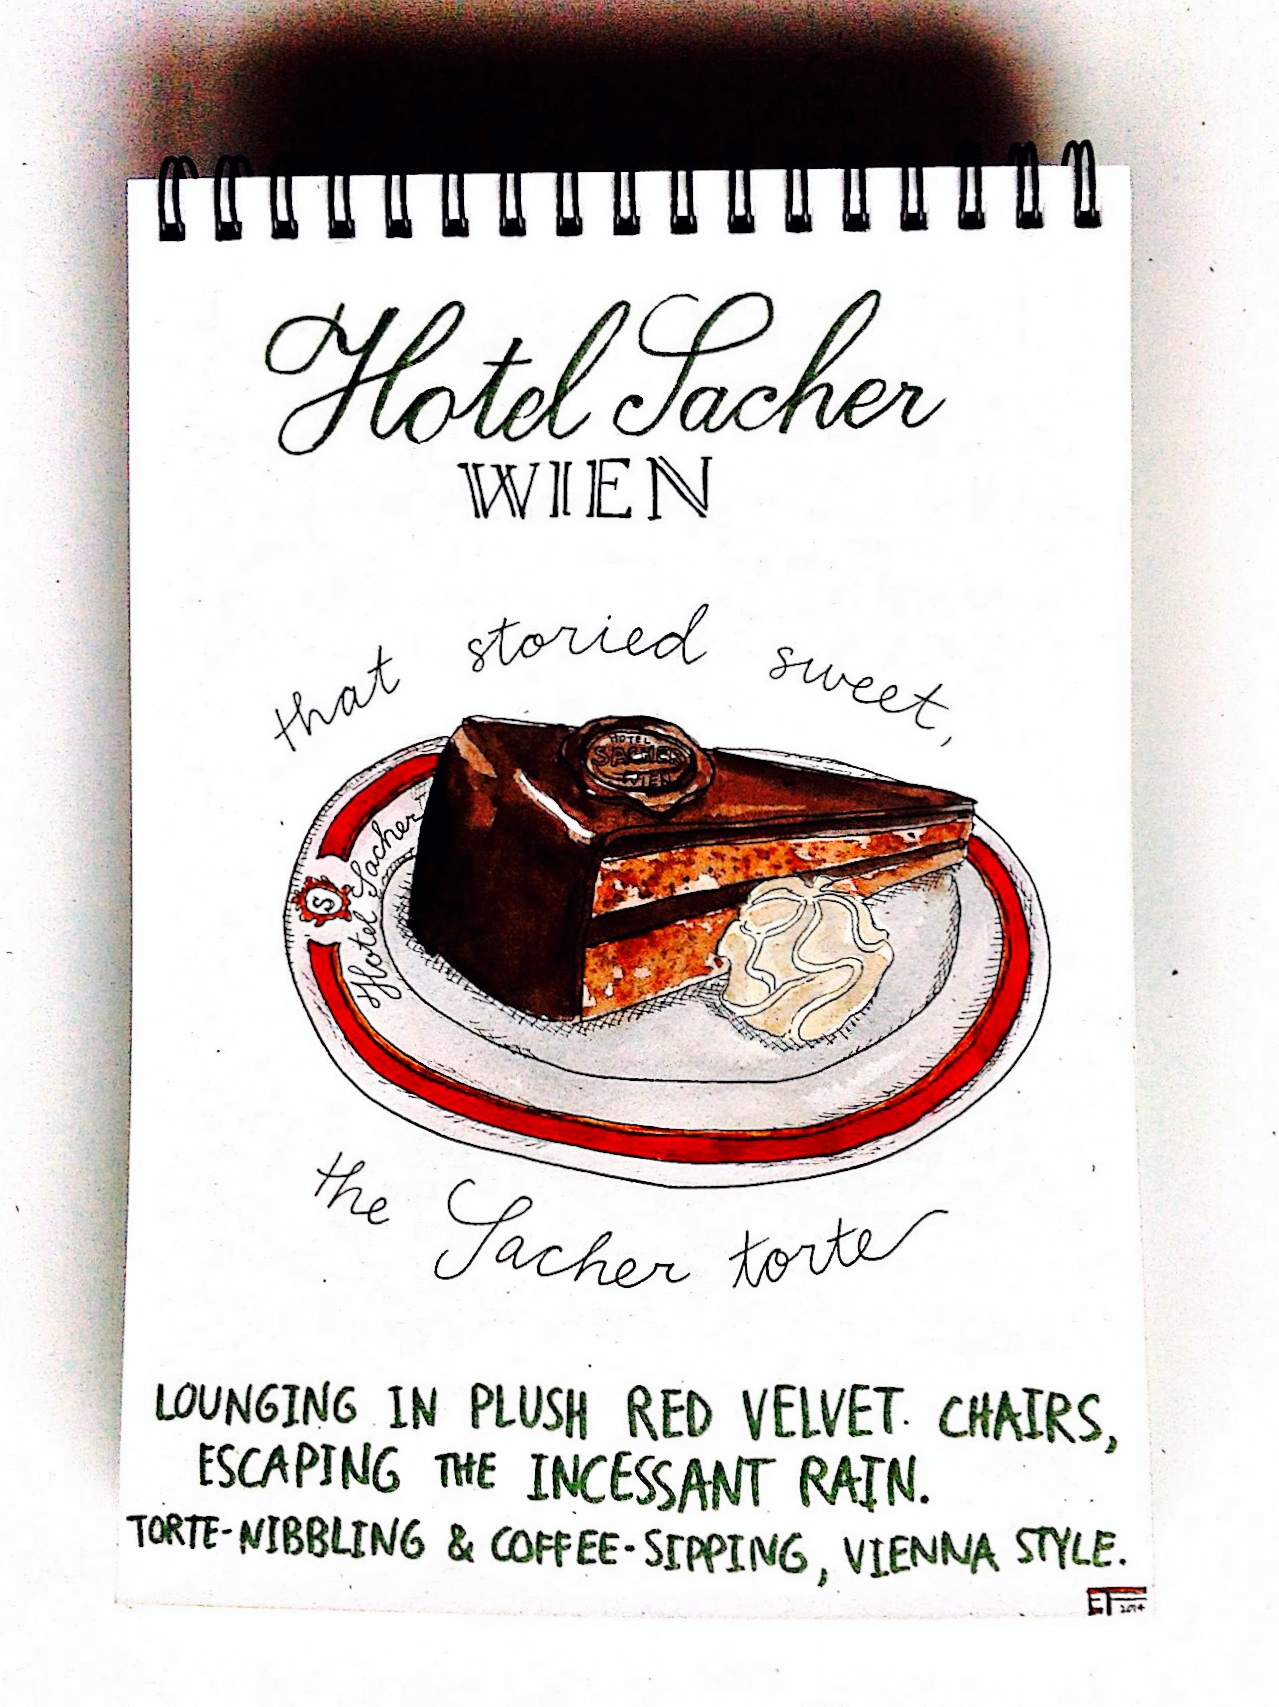 Hotel Sacher
WIEN
that storied sweet,
HOTEL
SACHER
WIEN
Hotel Sacher
S
the Sacher torte
LOUNGING IN PLUSH RED VELVET CHAIRS,
ESCAPING THE INCESSANT RAIN.
TORTE-NIBBLING & COFFEE-SIPPING, VIENNA STYLE.
ET 2014